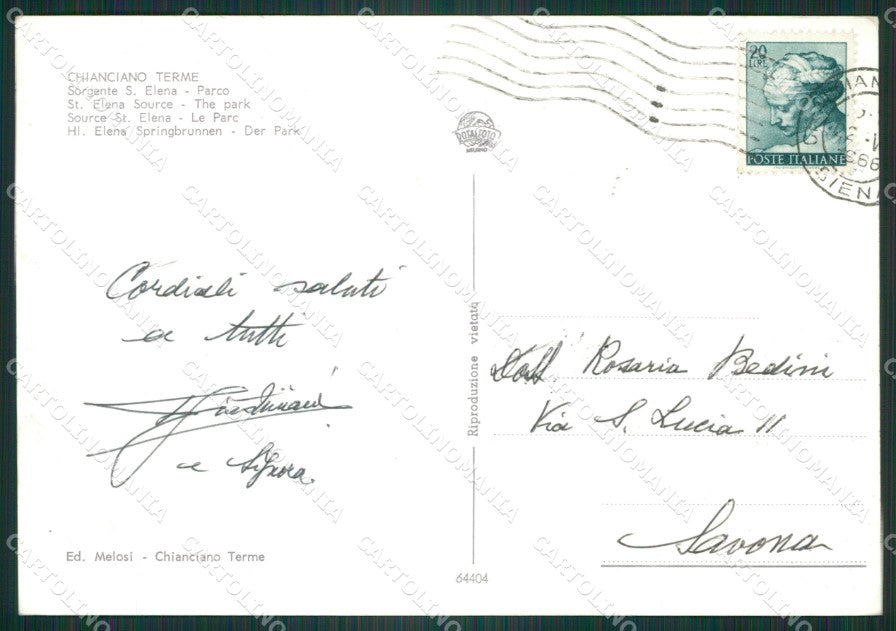 CHIANCIANO TERME
Sorgente S. Elena - Parco
St. Elena Source - The park
Source St. Elena - Le Parc
Hl. Elena Springbrunnen - Der Park
Cordiali saluti
a tutti
e Signora
Ed. Melosi - Chianciano Terme
ROTALFOTO
MILANO
Riproduzione vietata
64404
20
LIRE
POSTE ITALIANE
SIENA
Dott Rosaria Bedini
Via S. Lucia 11
Savona
CARTOLINOMANIA